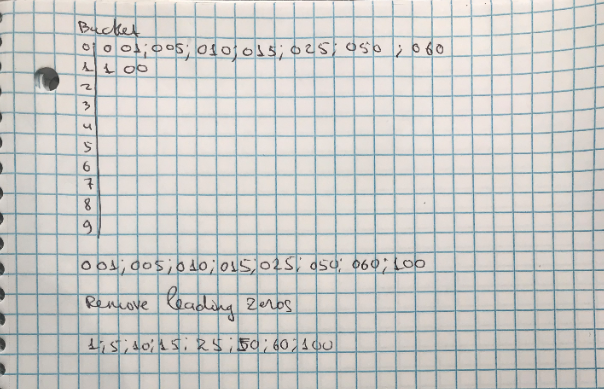 Bucket
0 001;005;010;015;025;050;060
1 100
2
3
4
5
6
7
8
9
001;005;010;015;025;050;060;100
Remove leading zeros
1;5;10;15;25;50;60;100